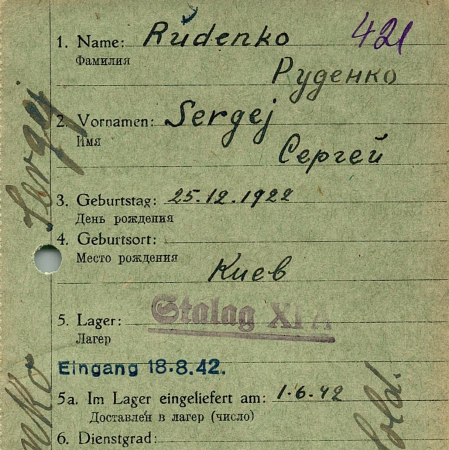 1. Name: Rudenko 421
Фамилия
Руденко
2. Vornamen: Sergej
Имя
Сергей
3. Geburtstag: 25.12.1922
День рождения
4. Geburtsort:
Место рождения
Киев
5. Lager: Stalag XI A
Лагер
Eingang 18.8.42.
5a. Im Lager eingeliefert am: 1.6.42
Доставлен в лагер (число)
6. Dienstgrad:
Sergej
nko
Sold.